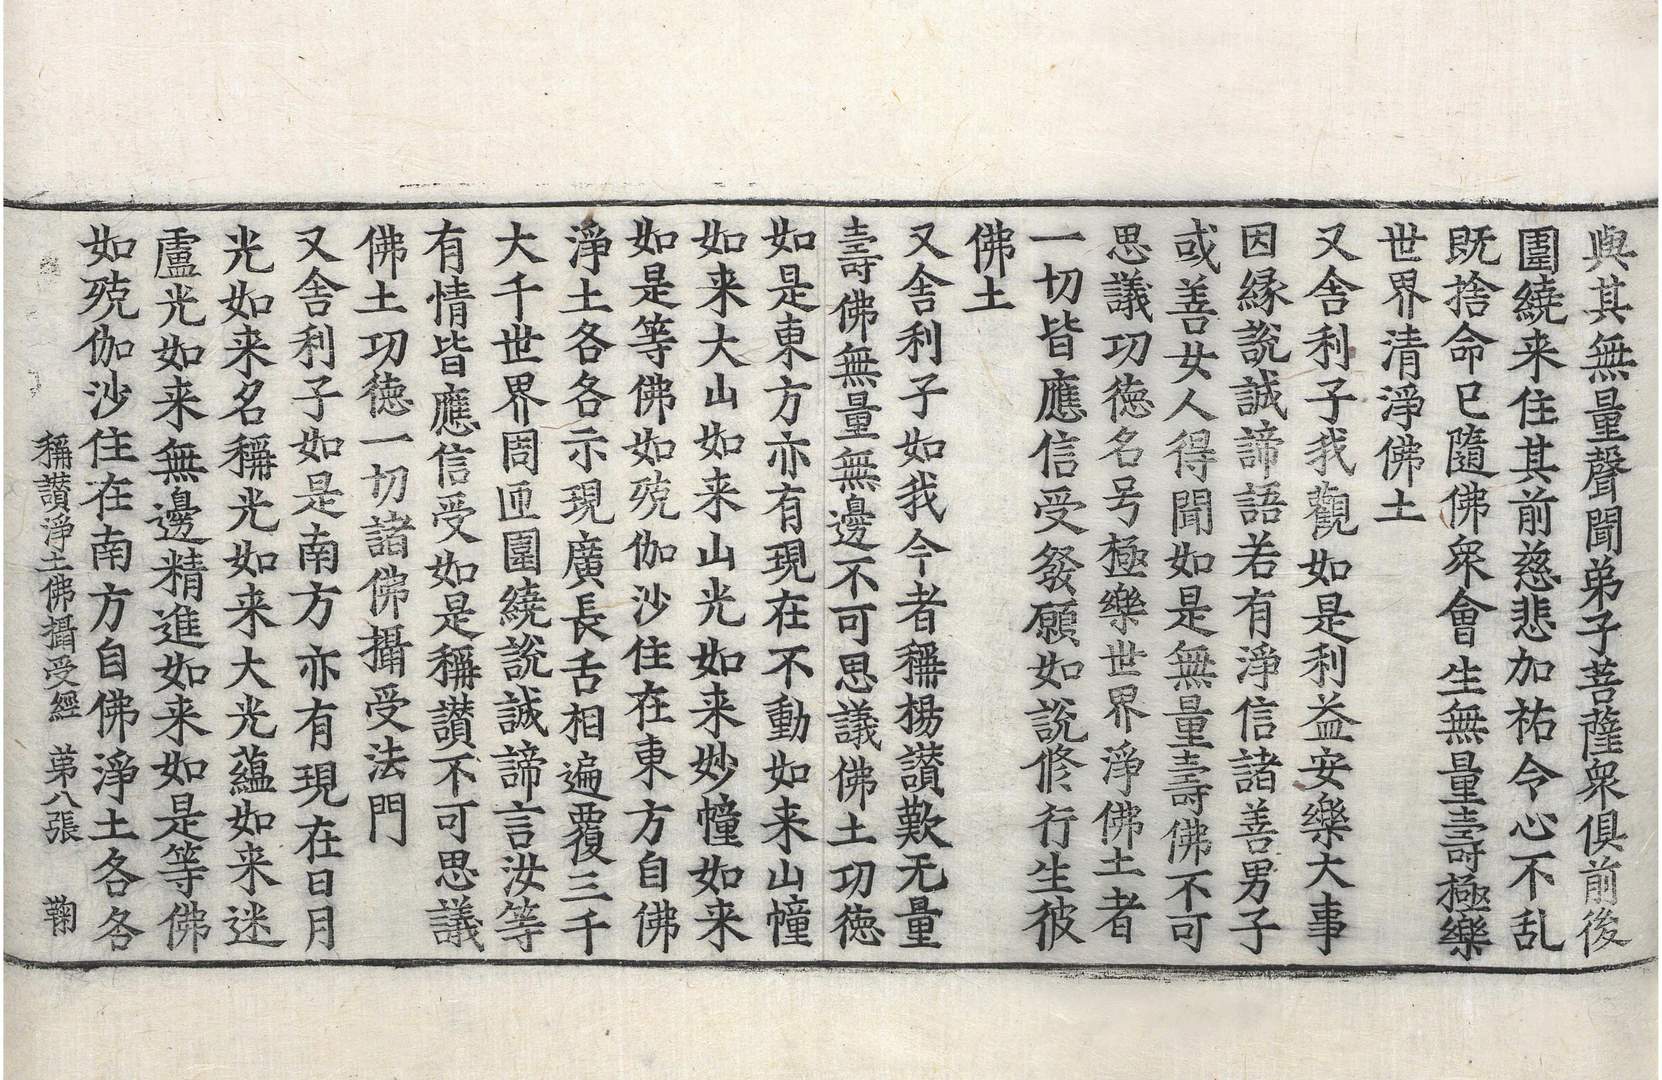 與其無量聲聞弟子菩薩衆俱前後
圍繞来住其前慈悲加祐令心不乱
既捨命已隨佛衆會生無量壽極樂
世界清淨佛土
又舍利子我觀如是利益安樂大事
因縁說誠諦語若有淨信諸善男子
或善女人得聞如是無量壽佛不可
思議功德名号極樂世界淨佛土者
一切皆應信受發願如說修行生彼
佛土
又舍利子如我今者稱揚讃歎无量
壽佛無量無邊不可思議佛土功德
如是東方亦有現在不動如来山幢
如来大山如来山光如来妙幢如来
如是等佛如殑伽沙住在東方自佛
淨土各各示現廣長舌相遍覆三千
大千世界周匝圍繞說誠諦言汝等
有情皆應信受如是稱讃不可思議
佛土功德一切諸佛攝受法門
又舍利子如是南方亦有現在日月
光如来名稱光如来大光蘊如来迷
盧光如来無邊精進如来如是等佛
如殑伽沙住在南方自佛淨土各各
稱讃淨土佛攝受經 第八張 鞠